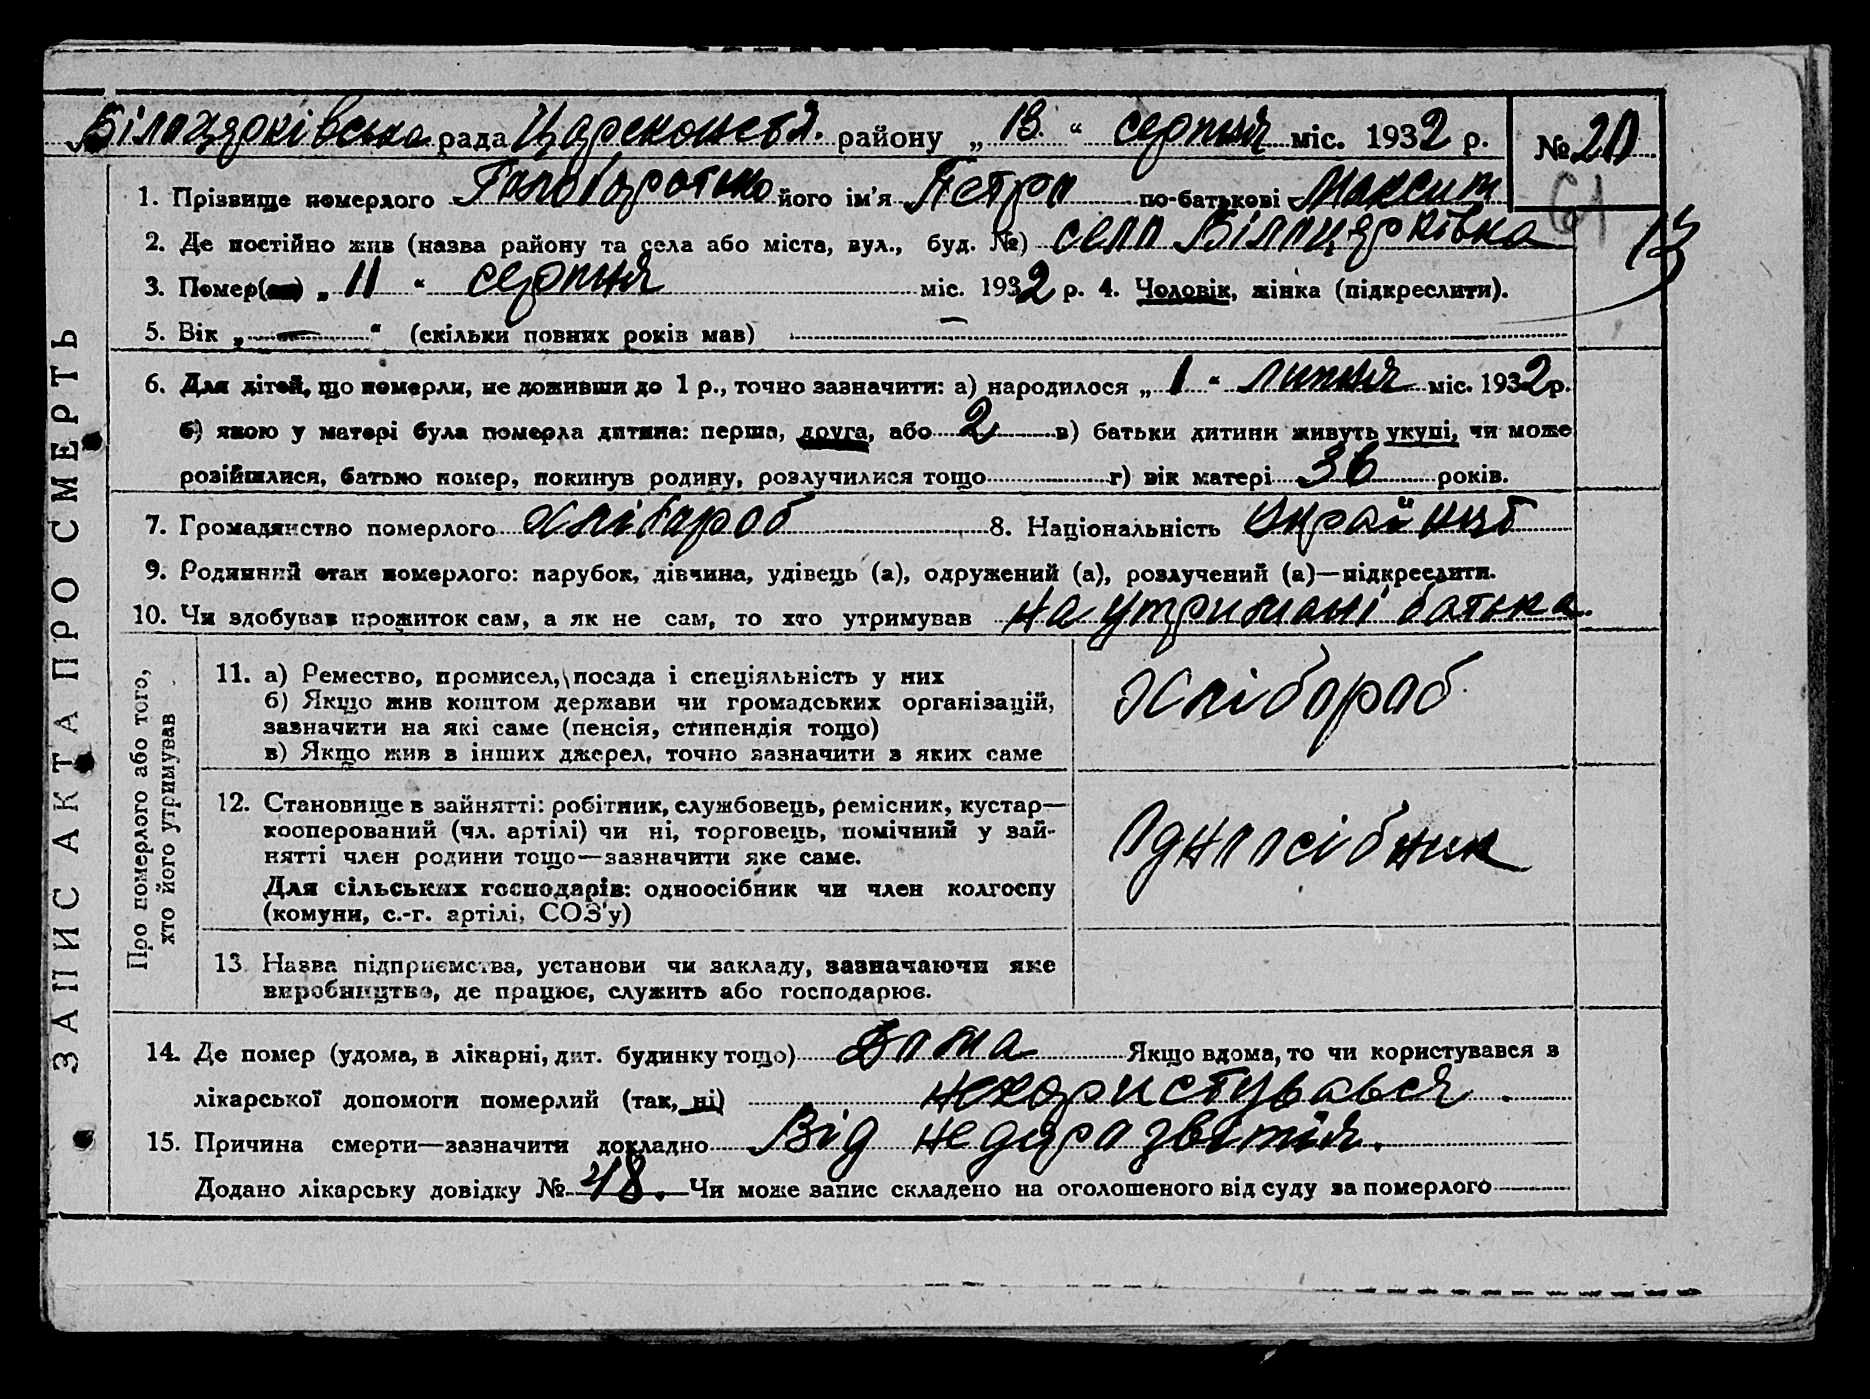 Білоцерківська рада Цареконстя. району „ 13. “ серпня міс. 1932 р. № 20
61
1. Прізвище померлого його ім’я Петро по-батькові Максим
2. Де постійно жив (назва району та села або міста, вул., буд. №) село
13
3. Помер(ла) „ 11 “ серпня міс. 1932 р. 4. Чоловік, жінка (підкреслити).
5. Вік „ — “ (скільки повних років мав) —
6. Для дітей, що померли, не доживши до 1 р., точно зазначити: а) народилося „ 1 “ липня міс. 1932 р.
б) якою у матері була померла дитина: перша, друга, або 2 в) батьки дитини живуть укупі, чи може
розійшлися, батько помер, покинув родину, розлучилися тощо г) вік матері 36 років.
7. Громадянство померлого хлібороб 8. Національність
9. Родинний стан померлого: парубок, дівчина, удівець (а), одружений (а), розлучений (а)—підкреслити.
10. Чи здобував прожиток сам, а як не сам, то хто утримував на утримані батька.
ЗАПИС АКТА ПРО СМЕРТЬ
Про померлого або того,
хто його утримував
11. а) Ремество, промисел, посада і спеціяльність у них
б) Якщо жив коштом держави чи громадських організацій,
зазначити на які саме (пенсія, стипендія тощо)
в) Якщо жив з інших джерел, точно зазначити з яких саме
хлібороб
12. Становище в зайнятті: робітник, службовець, ремісник, кустар—
кооперований (чл. артілі) чи ні, торговець, помічний у зай-
нятті член родини тощо—зазначити яке саме.
Для сільських господарів: одноосібник чи член колгоспу
(комуни, с.-г. артілі, СОЗ’у)
Одноосібник
13. Назва підприємства, установи чи закладу, зазначаючи яке
виробництво, де працює, служить або господарює.
14. Де помер (удома, в лікарні, дит. будинку тощо) Дома Якщо вдома, то чи користувався з
лікарської допомоги померлий (так, ні) некористувався
15. Причина смерти—зазначити докладно Від недоразвітія.
Додано лікарську довідку № 48. Чи може запис складено на оголошеного від суду за померлого